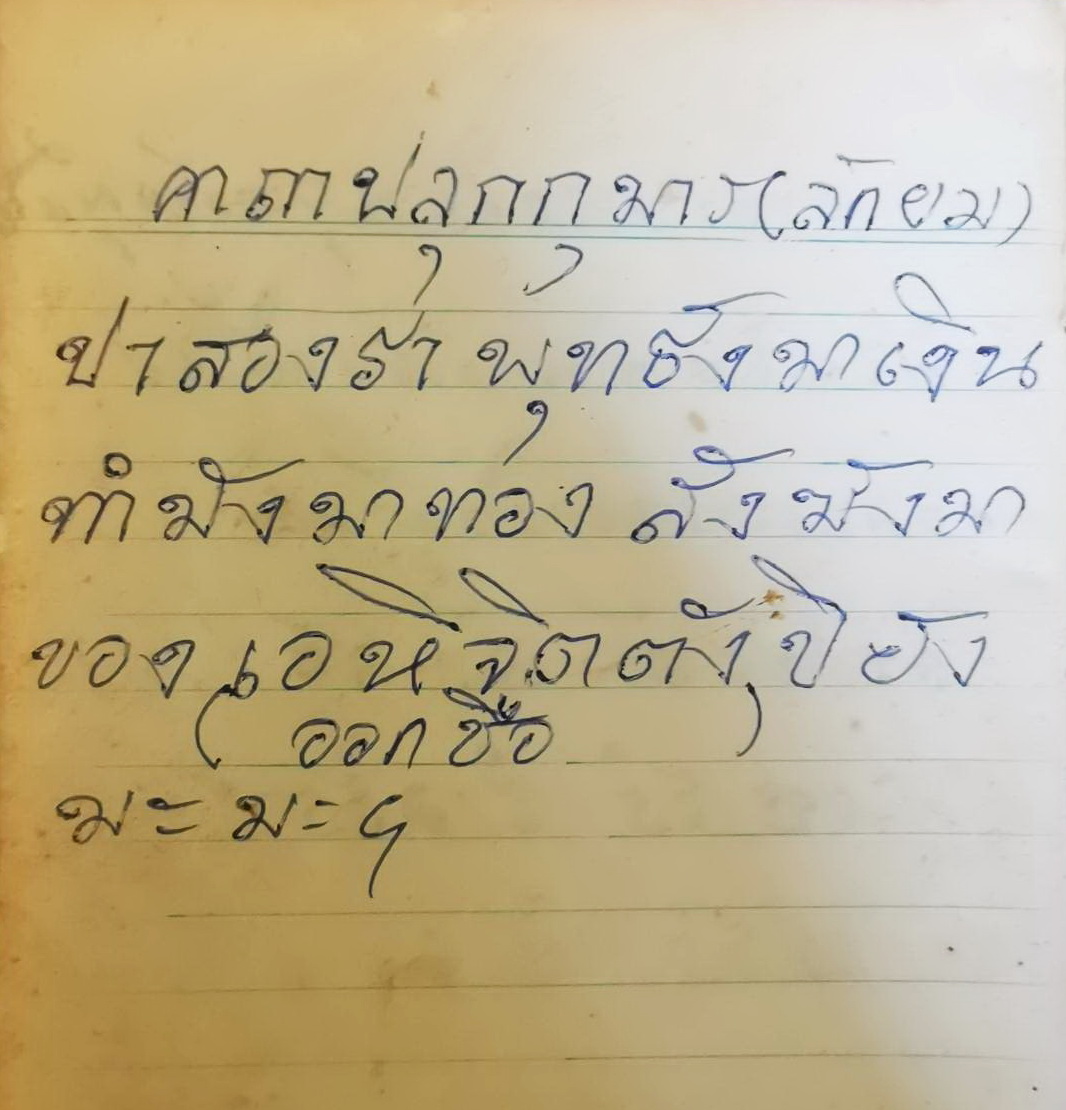 คาถาปลุกกุมาร(ลักยม)
ปาสองรา พุทธังมาเงิน
ทำมังมาทอง สังฆังมา
ของ เอหิจิตตังปิยัง
(ออกชื่อ )
มะ มะ ฯ